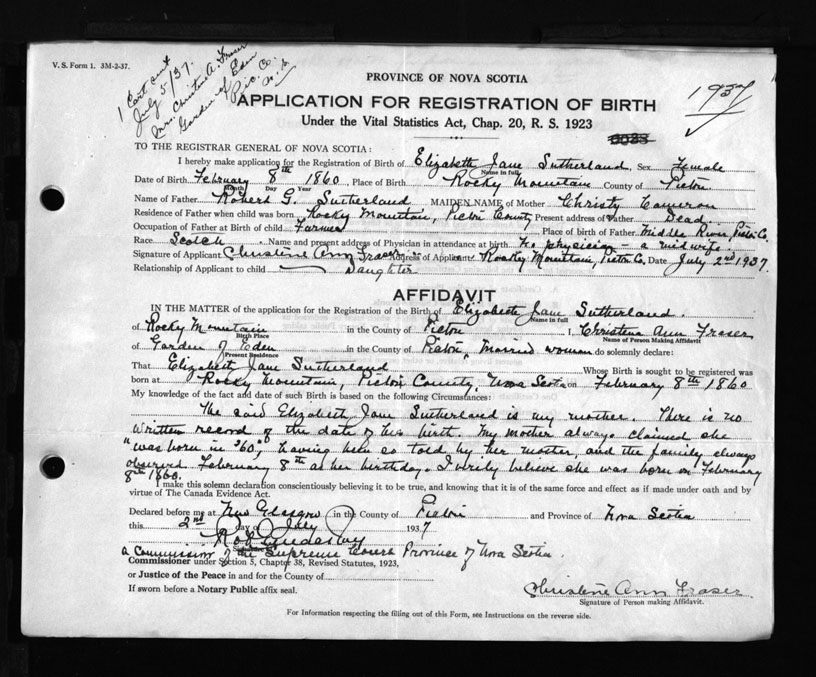 V. S. Form 1. 3M-2-37.
1 Cert sent
July 5/37.
Mrs. Christine A. Fraser
Garden of Eden
Pic. Co.
N. S.
1937
PROVINCE OF NOVA SCOTIA
APPLICATION FOR REGISTRATION OF BIRTH
Under the Vital Statistics Act, Chap. 20, R. S. 1923
TO THE REGISTRAR GENERAL OF NOVA SCOTIA:
I hereby make application for the Registration of Birth of Elizabeth Jane Sutherland Sex Female
Name in full
Date of Birth February 8th 1860, Place of Birth Rocky Mountain County of Pictou
Month Day Year
Name of Father Robert G. Sutherland MAIDEN NAME of Mother Christy Cameron
Residence of Father when child was born Rocky Mountain, Pictou County Present address of Father Dead.
Occupation of Father at Birth of child Farmer Place of Birth of Father Middle River, Pictou Co.
Race Scotch Name and present address of Physician in attendance at birth No physician - a midwife.
Signature of Applicant Christine Ann Fraser Address of Applicant Rocky Mountain, Pictou Co. Date July 2nd 1937.
Relationship of Applicant to child Daughter
AFFIDAVIT
IN THE MATTER of the application for the Registration of the Birth of Elizabeth Jane Sutherland.
Name in full
of Rocky Mountain in the County of Pictou I, Christina Ann Fraser
Birth Place Name of Person Making Affidavit
of Garden of Eden in the County of Pictou, Married woman do solemnly declare:
Present Residence
That Elizabeth Jane Sutherland Whose Birth is sought to be registered was
born at Rocky Mountain, Pictou County, Nova Scotia on February 8th 1860
My knowledge of the fact and date of such Birth is based on the following Circumstances:
The said Elizabeth Jane Sutherland is my mother. There is no
written record of the date of his birth. My mother always claimed she
"was born in '60", having been so told by her mother, and the family always
observed February 8th as her birthday. I verily believe she was born on February
8th 1860.
I make this solemn declaration conscientiously believing it to be true, and knowing that it is of the same force and effect as if made under oath and by
virtue of The Canada Evidence Act.
Declared before me at New Glasgow in the County of Pictou and Province of Nova Scotia
this 2nd day of July 1937
a Commissioner of the Supreme Court Province of Nova Scotia.
Commissioner under Section 5, Chapter 38, Revised Statutes, 1923,
or Justice of the Peace in and for the County of
If sworn before a Notary Public affix seal.
Christine Ann Fraser
Signature of Person making Affidavit.
For Information respecting the filling out of this Form, see Instructions on the reverse side.